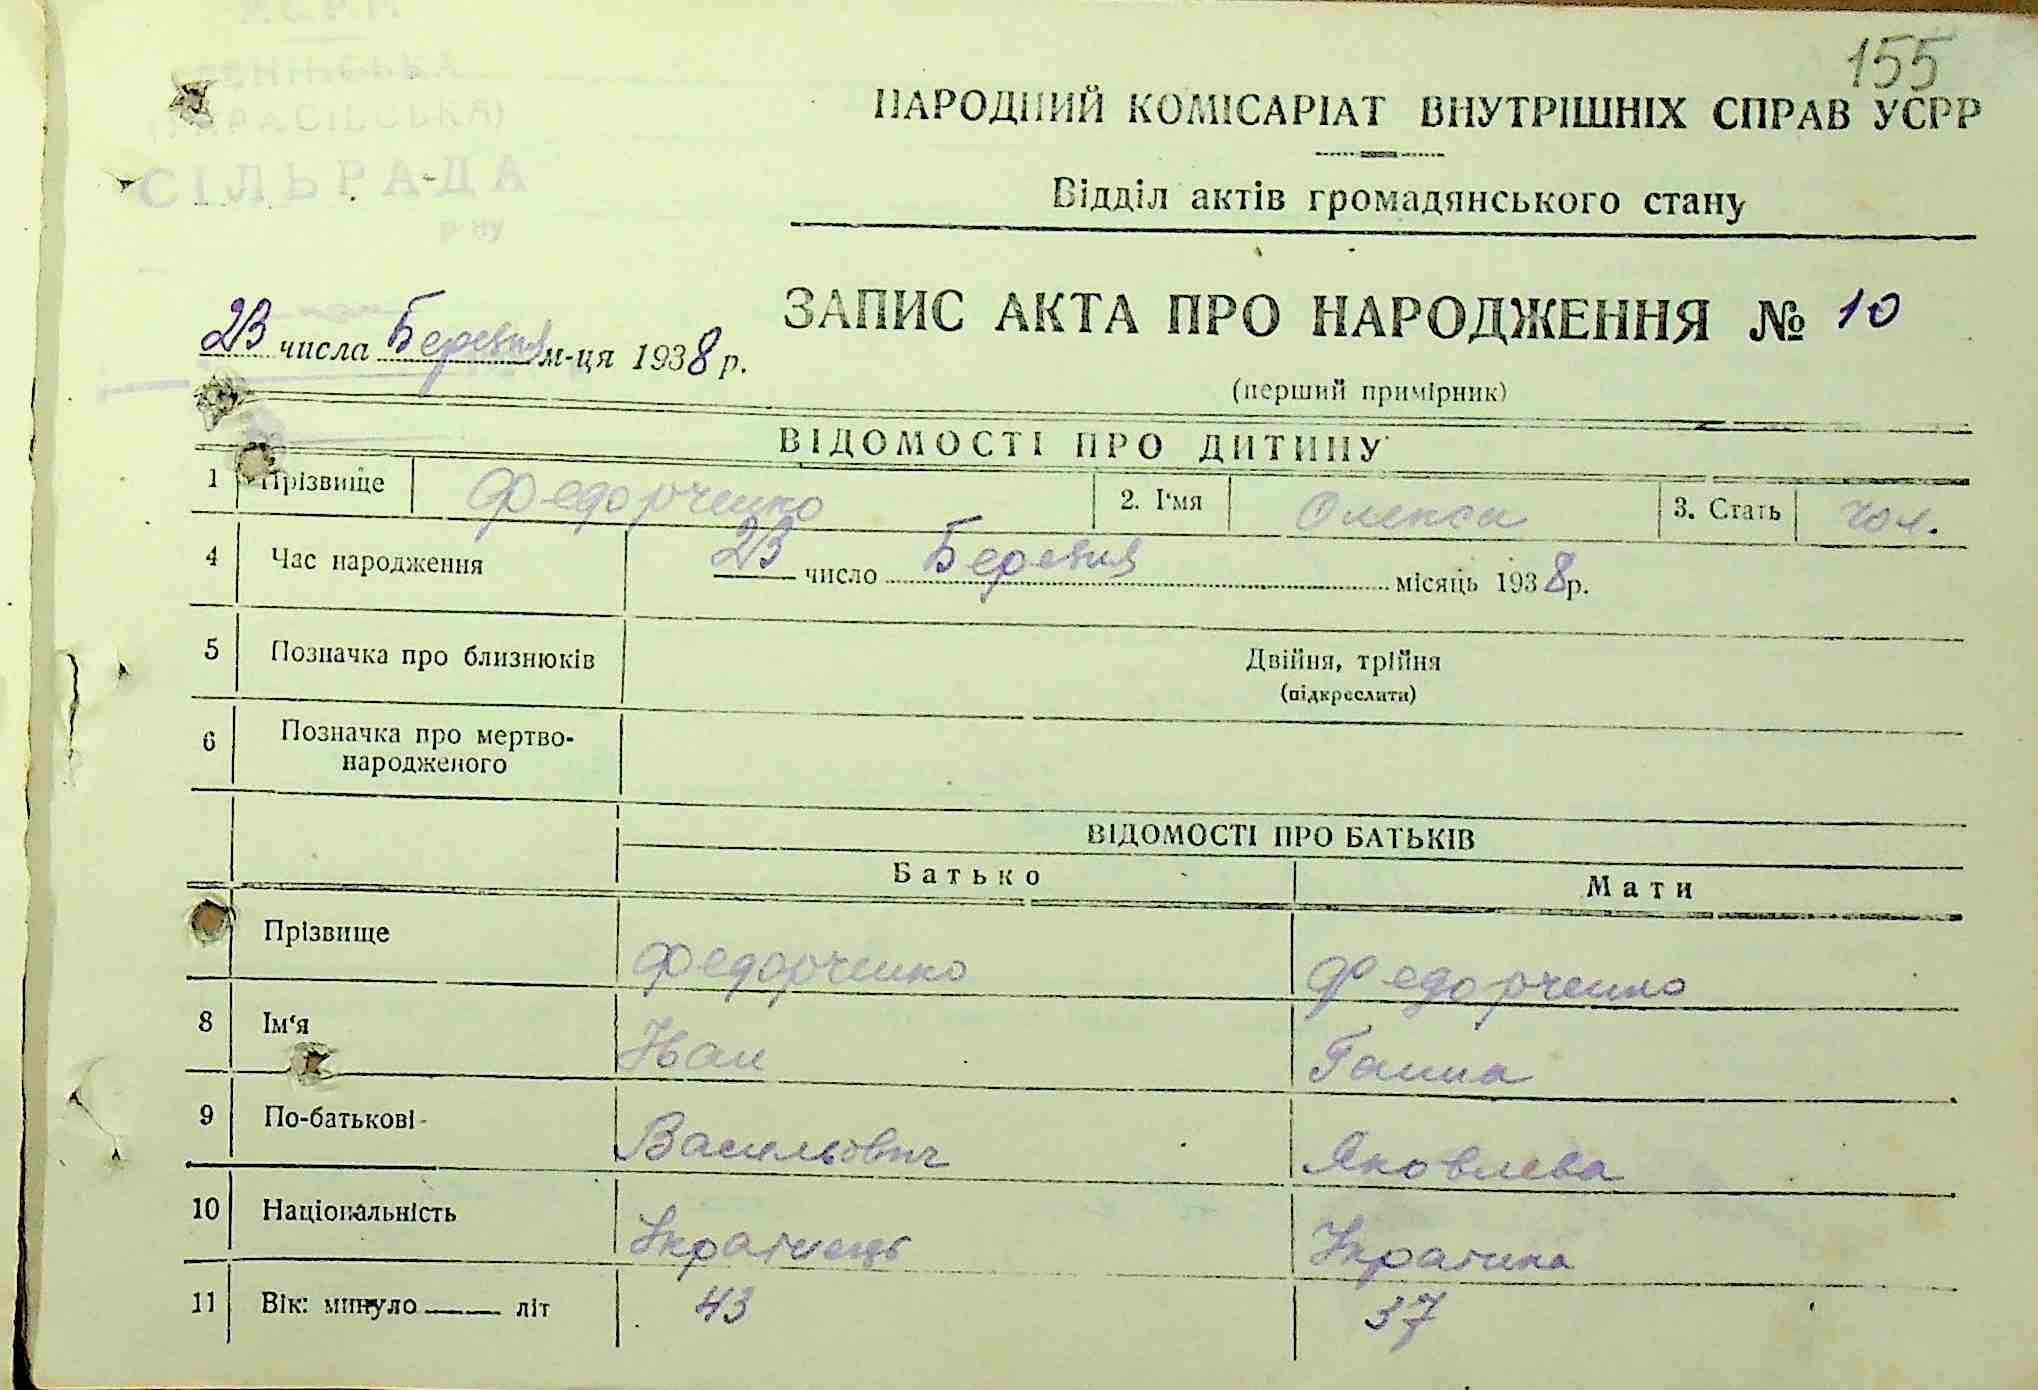 155
НАРОДНИЙ КОМІСАРІАТ ВНУТРІШНІХ СПРАВ УСРР
Відділ актів громадянського стану
СІЛЬРАДА
р-ну
ЗАПИС АКТА ПРО НАРОДЖЕННЯ № 10
23 числа Березня м-ця 1938 р.
(перший примірник)
ВІДОМОСТІ ПРО ДИТИНУ
1 Прізвище Федорченко 2. І'мя Олекса 3. Стать чол.
4 Час народження 23 число Березня місяць 1938р.
5 Позначка про близнюків Двійня, трійня
(підкреслити)
6 Позначка про мертво-
народженого
ВІДОМОСТІ ПРО БАТЬКІВ
Батько Мати
Прізвище Федорченко Федорченко
8 Ім'я Іван Ганна
9 По-батькові Васильович Яковлева
10 Національність Українець Україн​ка
11 Вік: минуло літ 43 37